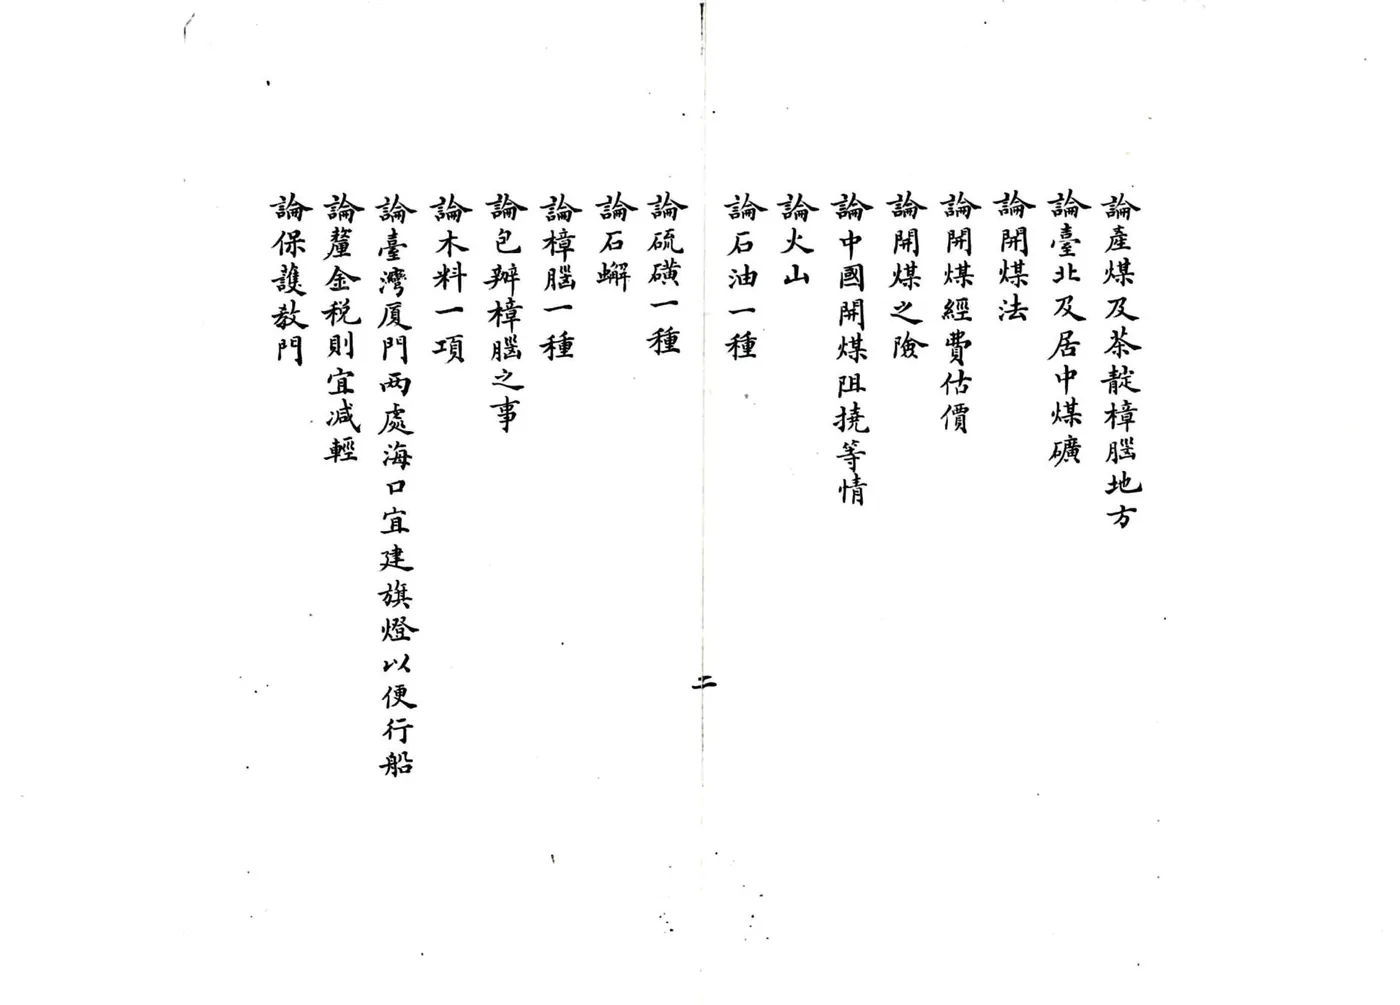 論產煤及茶靛樟腦地方
論臺北及居中煤礦
論開煤法
論開煤經費估價
論開煤之險
論中國開煤阻撓等情
論火山
論石油一種
二
論硫磺一種
論石蠏
論樟腦一種
論包辦樟腦之事
論木料一項
論臺灣厦門两處海口宜建旗燈以便行船
論釐金税則宜减輕
論保護教門